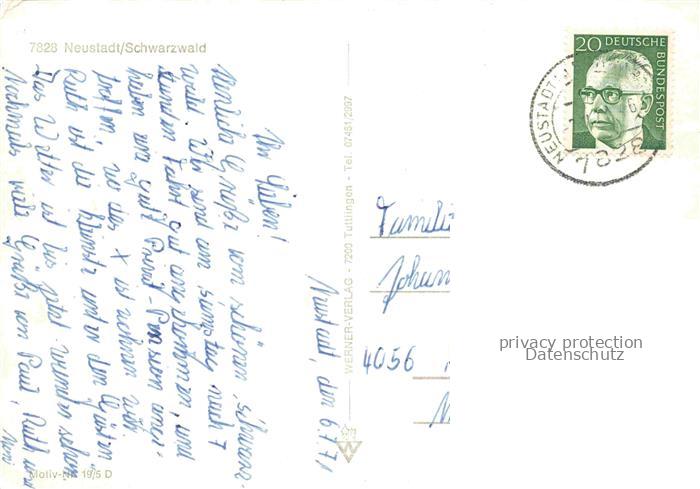 7828 Neustadt/Schwarzwald
Neustadt, den 6.7.71
Ihr Lieben!
Herzliche Grüße vom schönen Schwarz-
wald. Wir sind am Samstag nach 7
Stunden Fahrt gut angekommen, und
haben eine gute Privat-Pension ange-
troffen, wo das X ist wohnen wir.
Ruth ist die kleinste unter den Gästen
Das Wetter ist bis jetzt wunderschön
Nochmals viele Grüße von Paul, Ruth und
Motiv-Nr. 19/5 D
WERNER-VERLAG - 7200 Tuttlingen - Tel. 07461/2997
20 DEUTSCHE
BUNDESPOST
NEUSTADT
7828
Familie
Johann
4056
privacy protection
Datenschutz